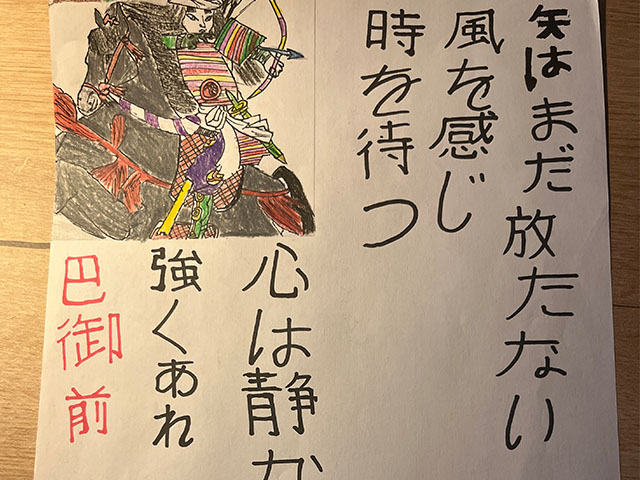 矢はまだ放たない
風を感じ
時を待つ
心は静か
強くあれ
巴御前